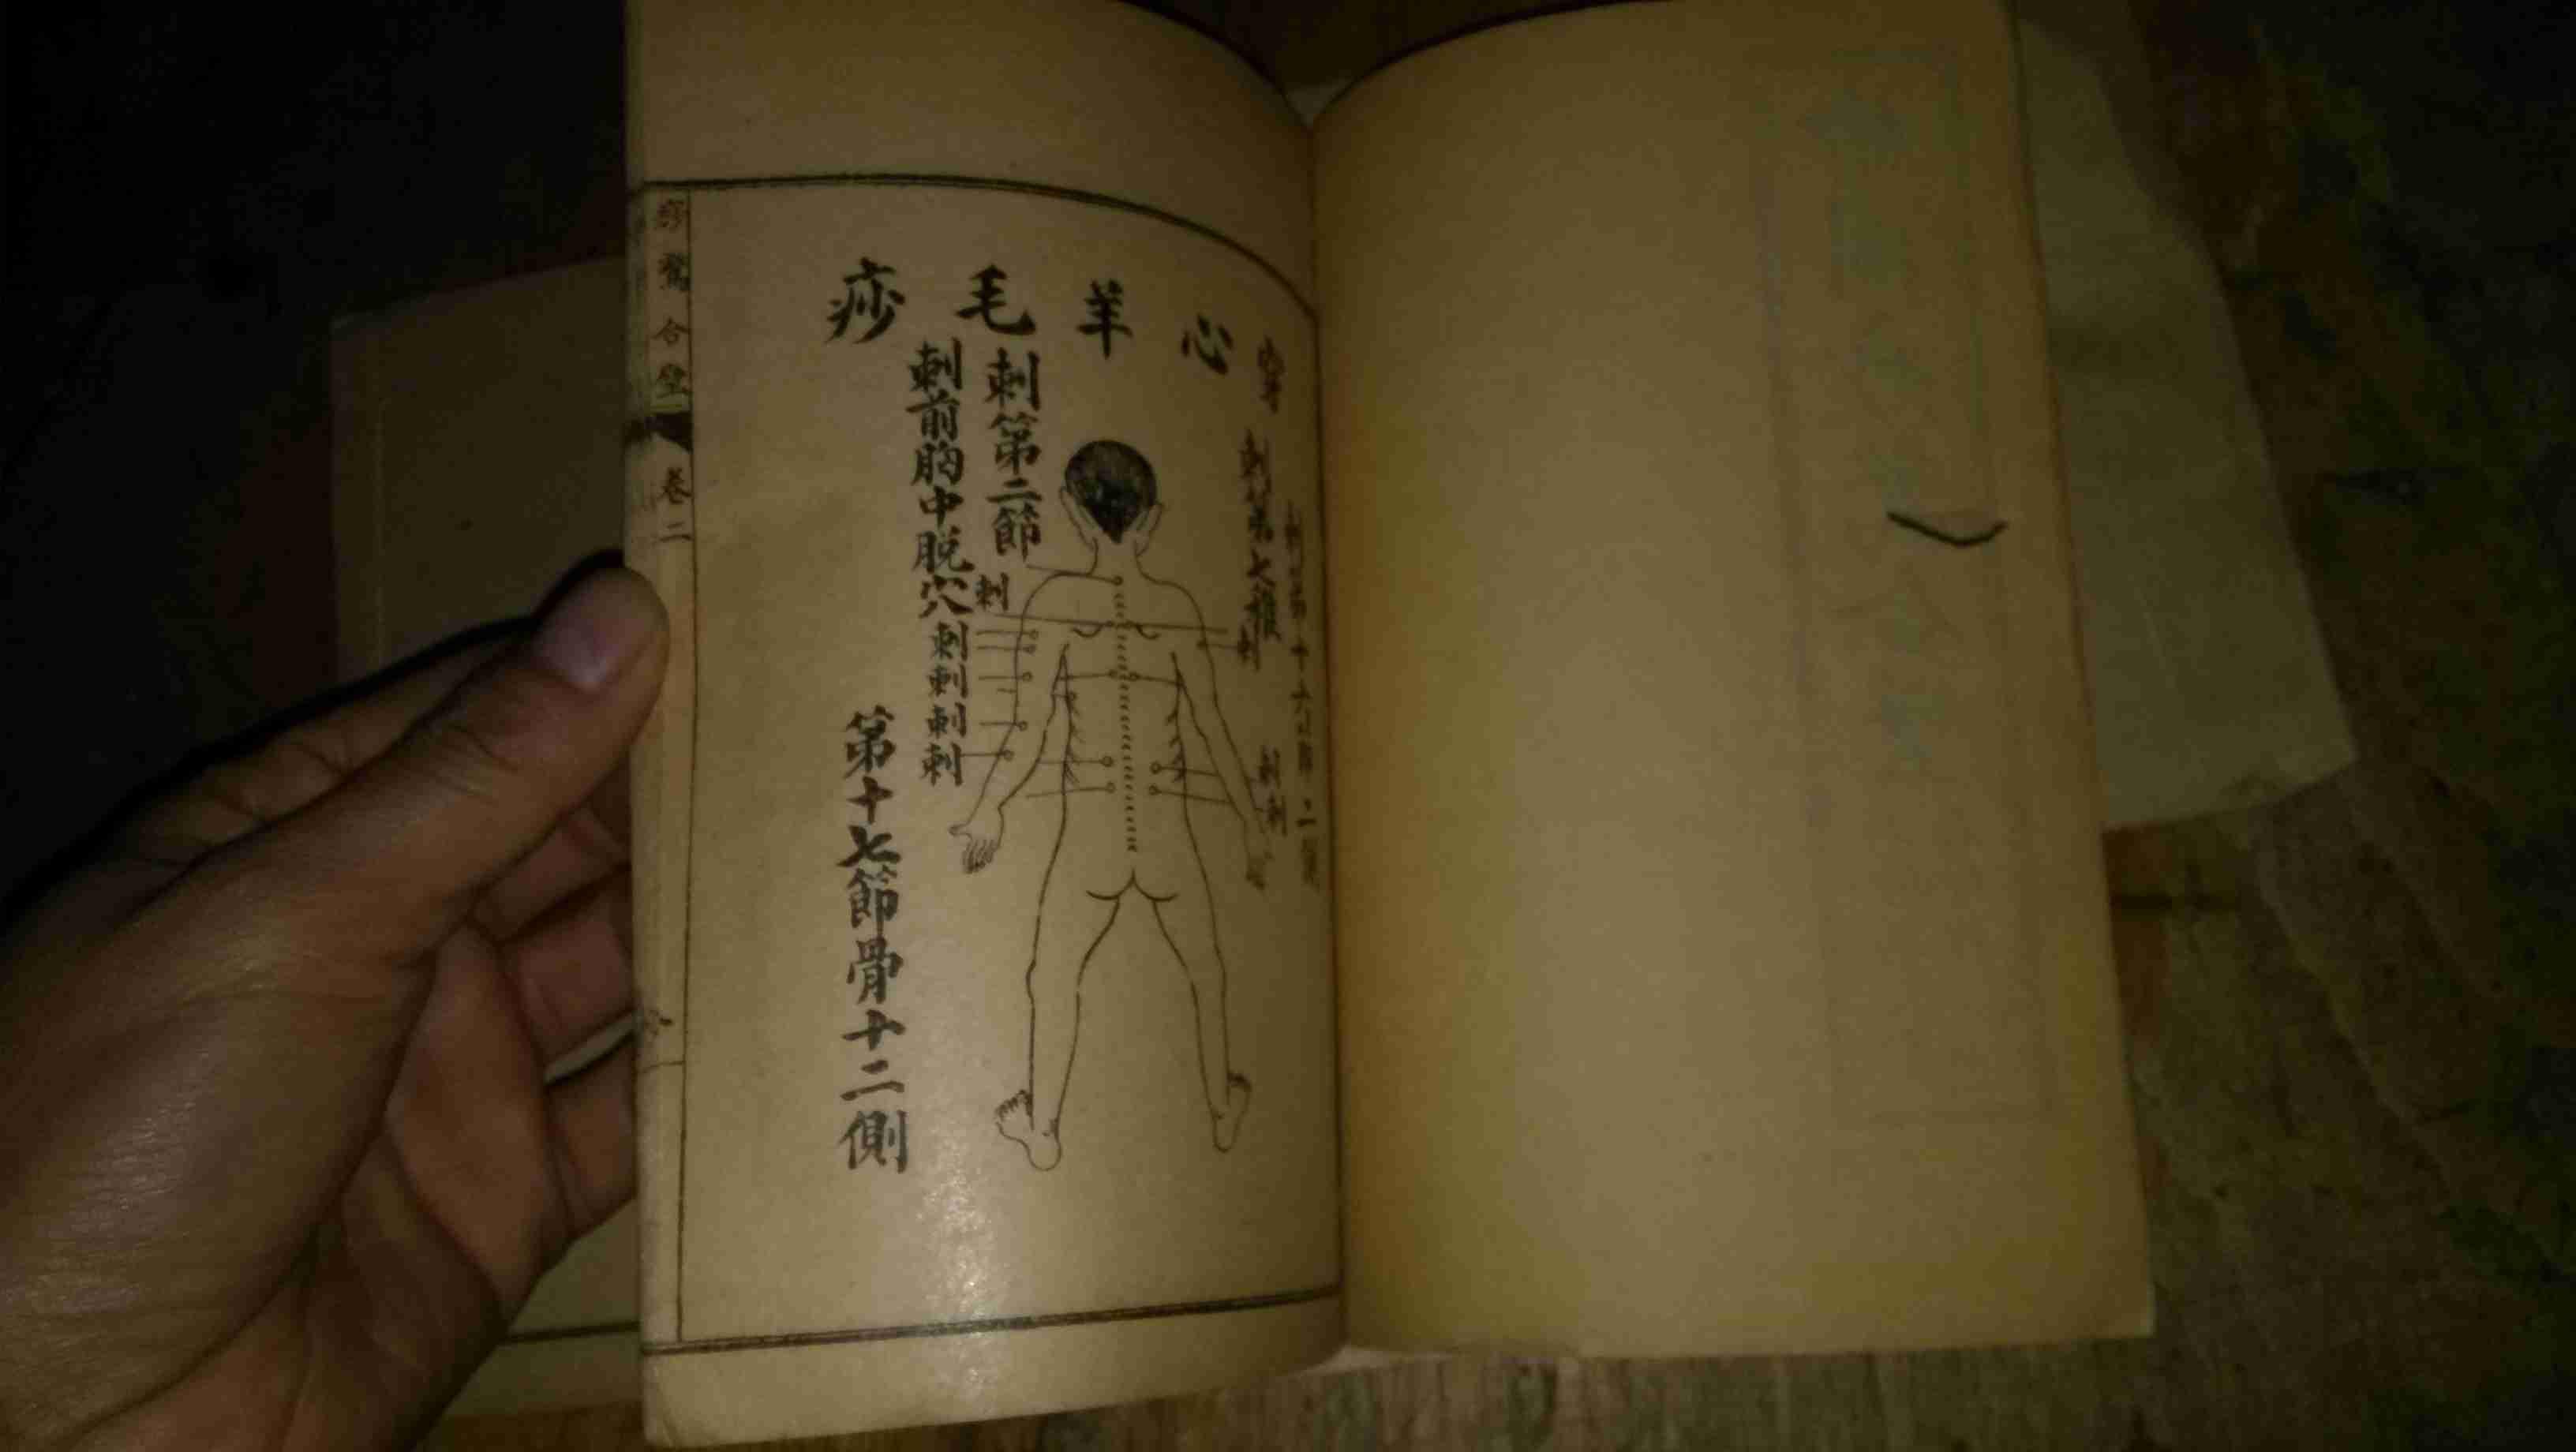 穿心羊毛痧
刺第七椎
刺
刺
刺
刺第二節
刺前胸中脫穴
刺
刺
刺
刺
刺
第十七節骨十二側
痧驚合璧
卷二